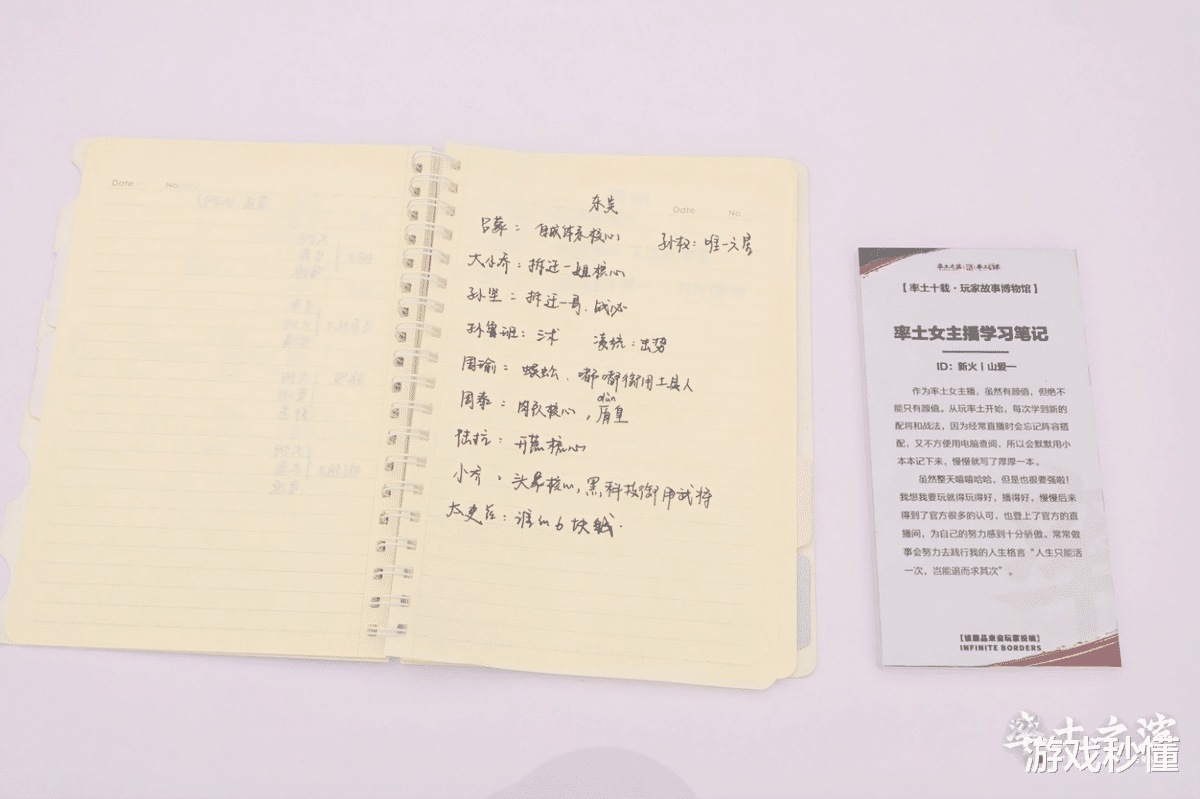 Date No.
东吴
Date No.
吕蒙：自城体系核心 孙权：唯一文官
大小乔：拆迁一姐核心
孙坚：拆迁一哥、战必
孙鲁班：三术 凌统：出势
周瑜：蜈蚣、嘟嘟御用工具人
dùn
周泰：肉队核心，盾皇
陆抗：开荒核心
小乔，头晕核心，黑科技御用武将
太史慈：谁的6块钱.
率土之滨
【率土十载·玩家故事博物馆】
率土女主播学习笔记
ID：新火丨山爱一
作为率土女主播，虽然有颜值，但绝不
能只有颜值。从玩率土开始，每次学到新的
配将和战法，因为经常直播时会忘记阵容搭
配，又不方便用电脑查阅，所以会默默用小
本本记下来，慢慢就写了厚厚一本。
虽然整天嘻嘻哈哈，但是也很要强啦！
我想我要玩就得玩得好，播得好，慢慢后来
得到了官方很多的认可，也登上了官方的直
播间，为自己的努力感到十分骄傲。常常做
事会努力去践行我的人生格言“人生只能活
一次，岂能退而求其次”。
【该展品来自玩家投稿】
INFINITE BORDERS
率土之滨
游戏秒懂